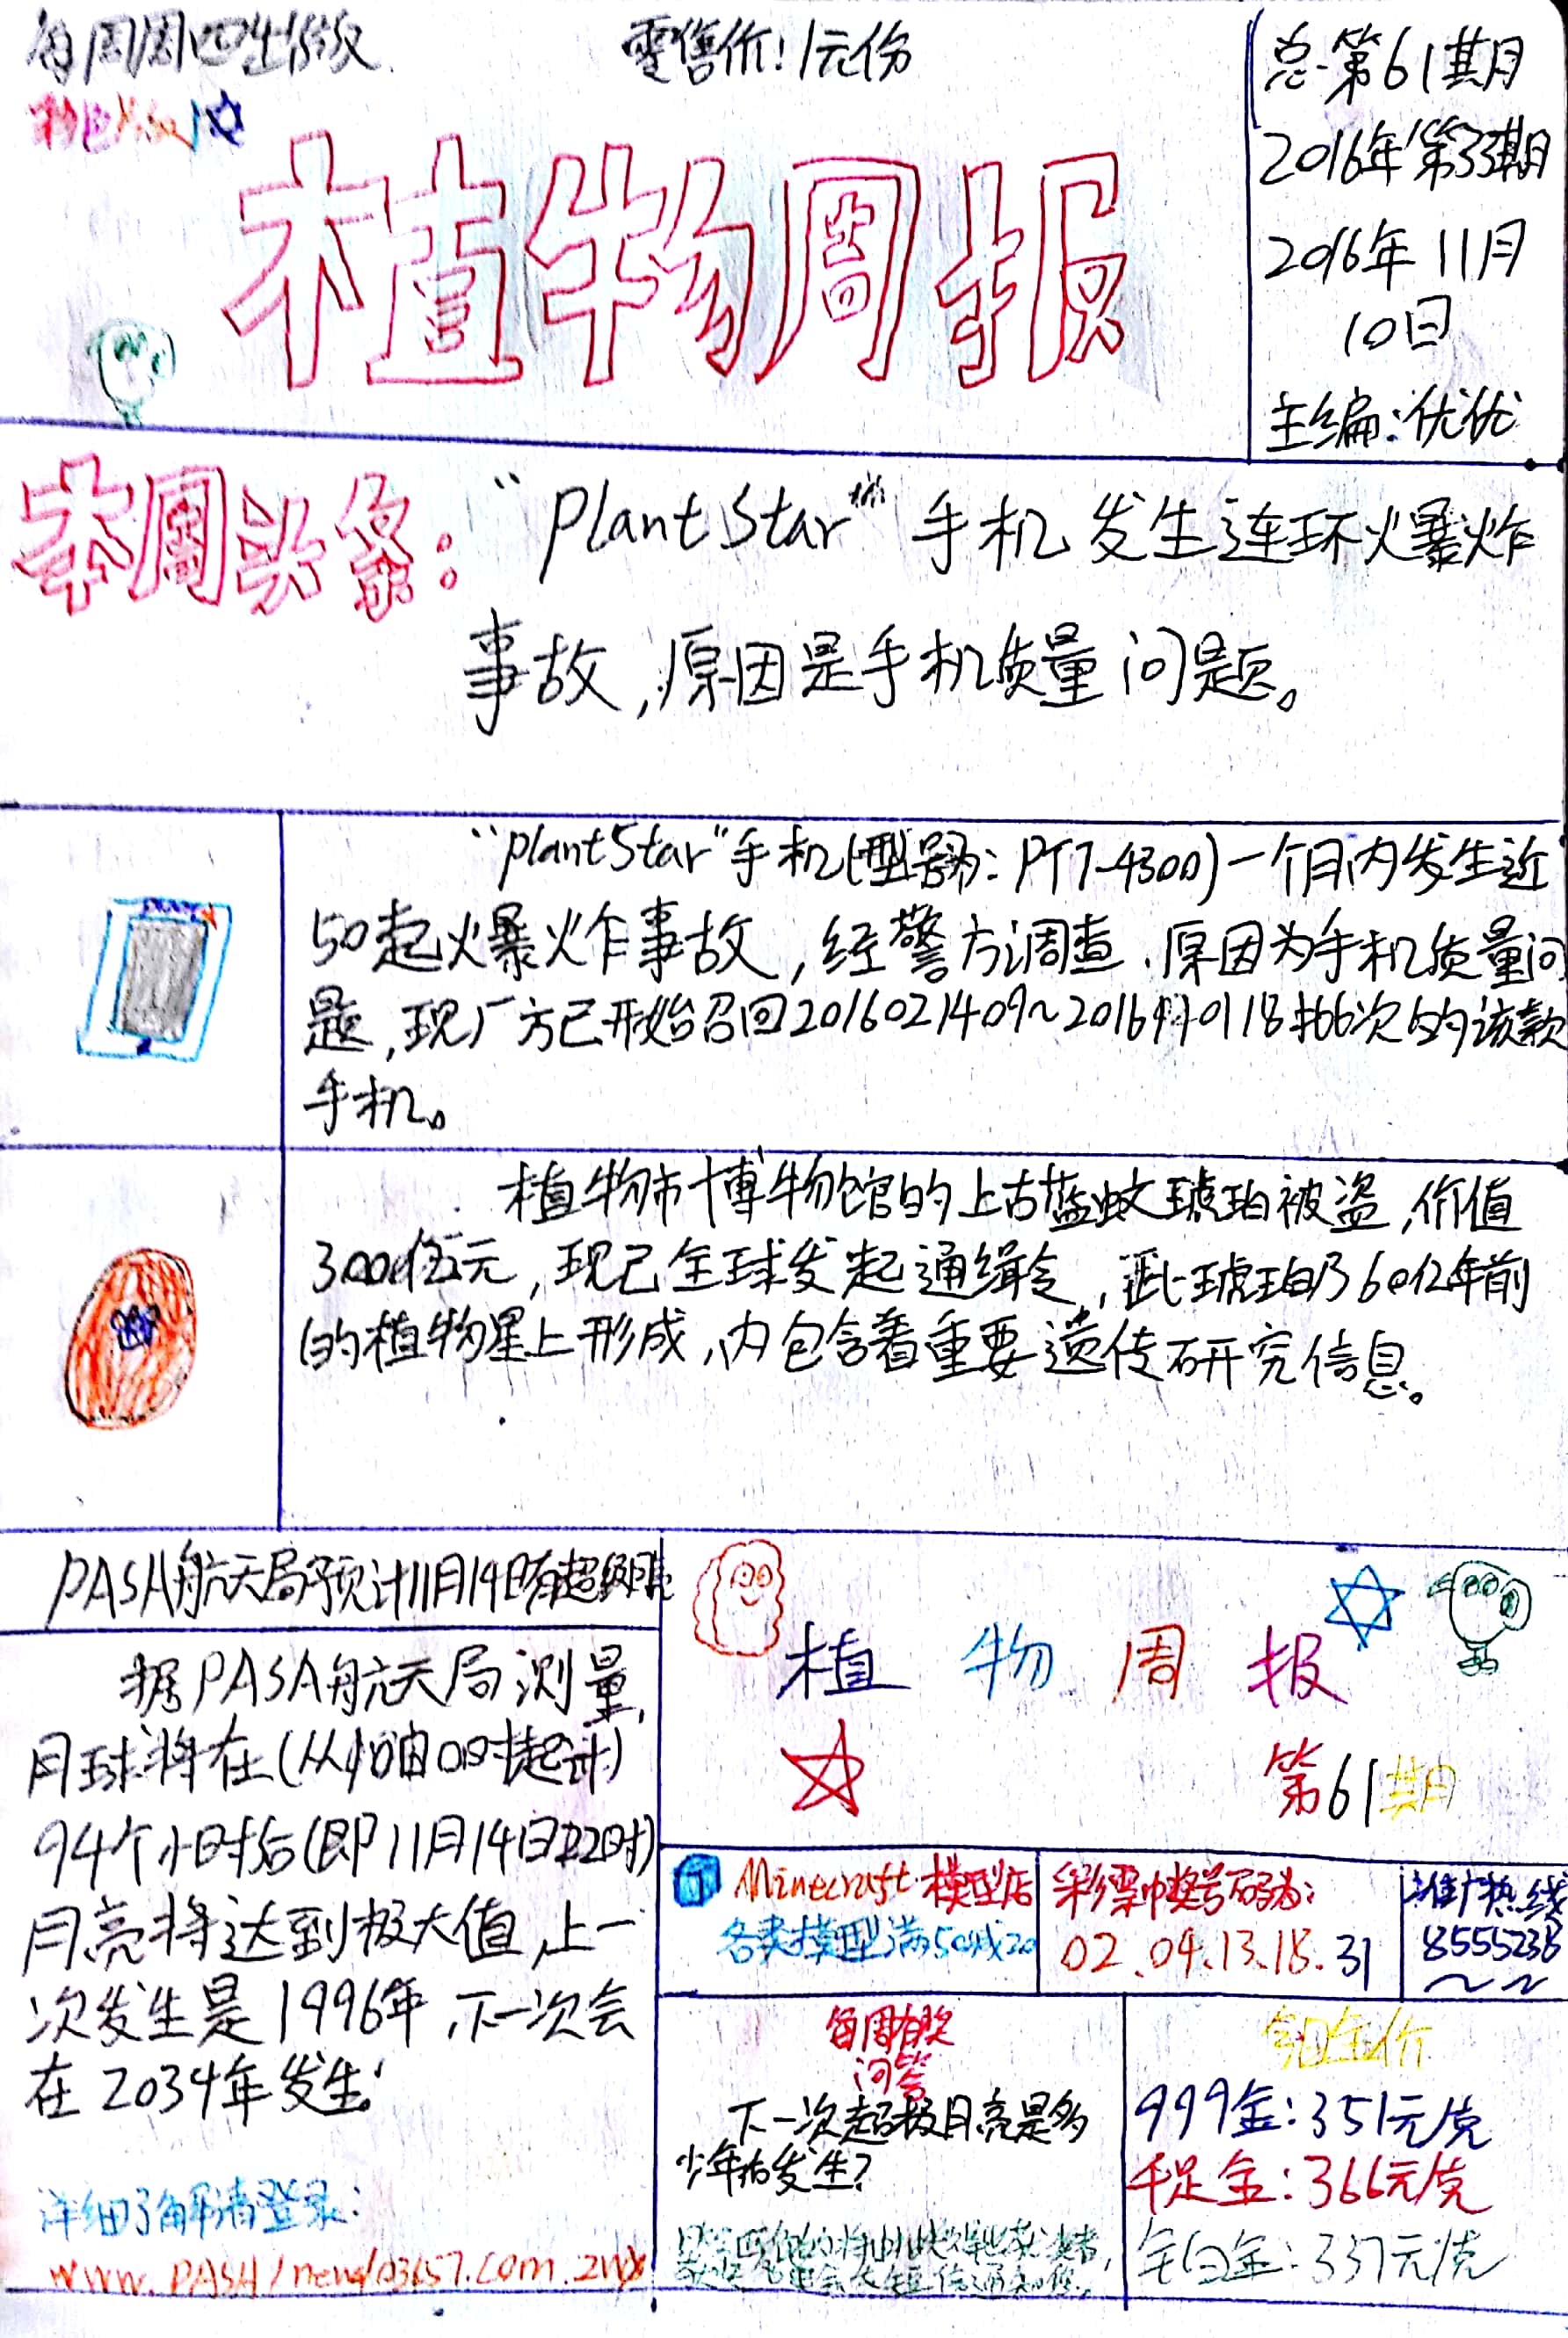 每周周四出版
零售价:1元/份
总第61期
2016年第33期
2016年11月
10日
主编:优优
彩色版
植物周报
本周头条:
“PlantStar”手机发生连环火爆炸
事故,原因是手机质量问题。
“plantStar”手机(型号为:PT7-4300)一个月内发生近
50起火爆炸事故,经警方调查,原因为手机质量问
题,现厂方已开始召回2016021409~20160118批次的该款
手机。
植物市博物馆的上古蓝蚊琥珀被盗,价值
3000亿元,现已全球发起通缉令,此琥珀乃60亿年前
的植物星上形成,内包含着重要遗传研究信息。
PASA航天局预计11月14日有超级月亮
据PASA航天局测量,
月球将在(从10日0时起计)
94个小时后(即11月14日22时)
月亮将达到极大值,上一
次发生是1996年,下一次会
在2034年发生.
详细了解请登录:
植物周报
第61期
Minecraft模型店
各类模型满50减20
彩票中奖号码为:
02.04.13.18.31
推广热线
8555238
每周有奖
问答
下一次超极月亮是多
少年后发生?
今日金价
999金:351元/克
千足金:366元/克
铂白金:337元/克